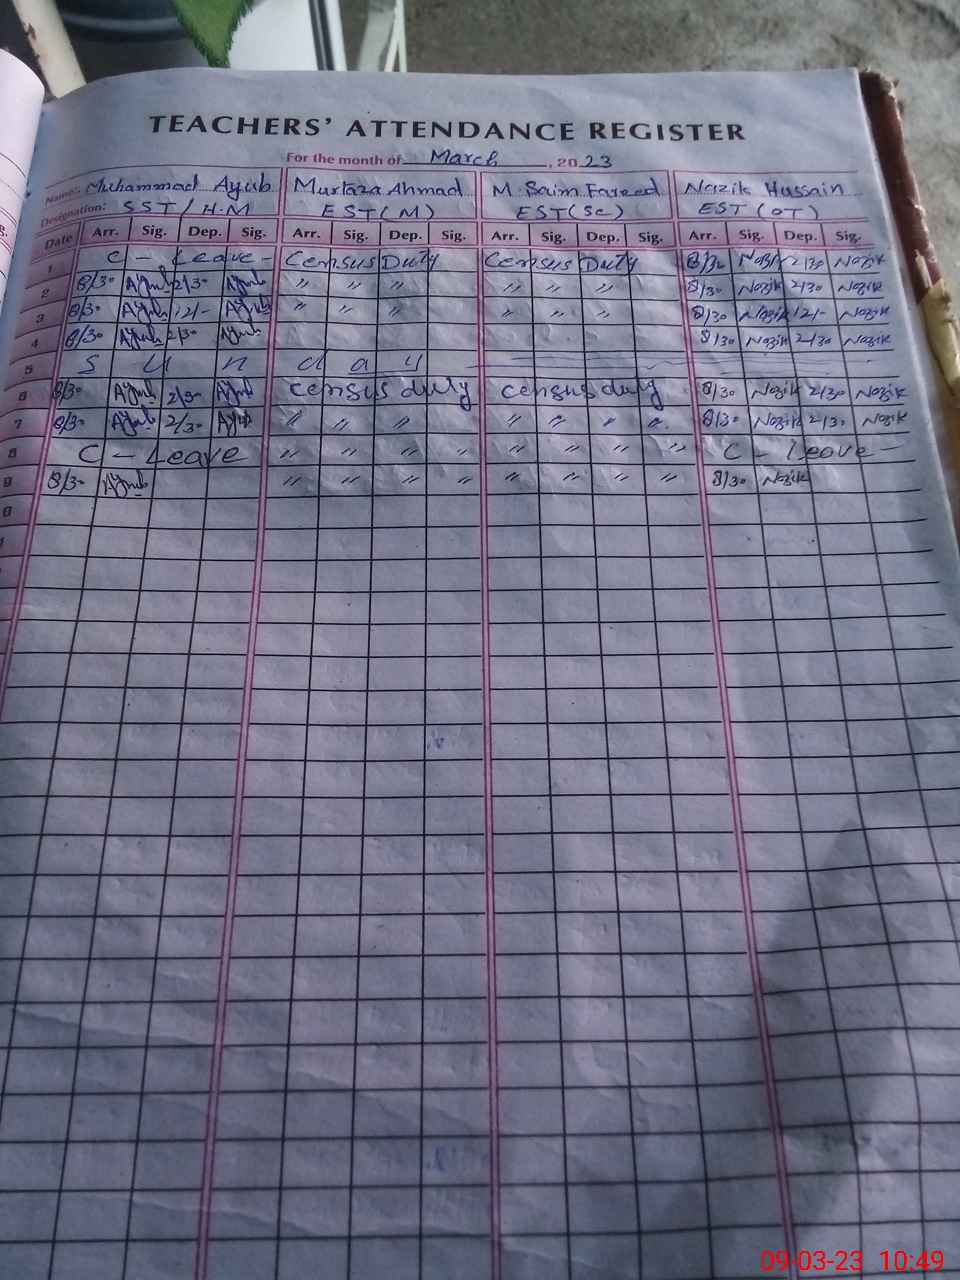 TEACHERS' ATTENDANCE REGISTER
For the month of March, 2023
Name: Muhammad Ayub Murtaza Ahmad M. Saim Fareed Nazik Hussain
Designation: SST/H.M EST(M) EST(Sc) EST(OT)
Date Arr. Sig. Dep. Sig. Arr. Sig. Dep. Sig. Arr. Sig. Dep. Sig. Arr. Sig. Dep. Sig.
1 C - Leave - Census Duty Census Duty 8/30 Nazik 2/30 Nazik
2 8/30 Ayub 2/30 Ayub " " " " " " 8/30 Nazik 2/30 Nazik
3 8/30 Ayub 12/- Ayub " " " " " " 8/30 Nazik 12/- Nazik
4 8/30 Ayub 2/30 Ayub 8/30 Nazik 2/30 Nazik
5 S u n d a y
6 8/30 Ayub 2/30 Ayub census duty census duty 8/30 Nazik 2/30 Nazik
7 8/30 Ayub 2/30 Ayub " " " " " " " " 8/30 Nazik 2/30 Nazik
8 C - Leave " " " " " " " " C - Leave -
9 8/30 Ayub " " " " " " " " 8/30 Nazik
09-03-23 10:49